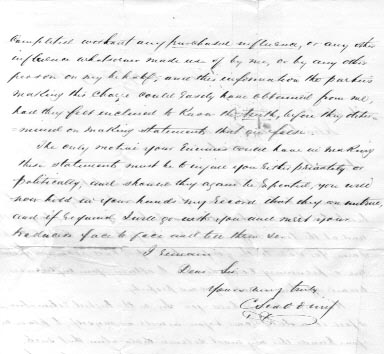 completed without any purchased influence, or any other
influence whatsoever made use of by me, or by any other
person on my behalf, and this information the parties
making this charge could easily have obtained from me,
had they felt inclined to know the truth, before they
mined on making statements that are false.
The only motive your Enemies could have in making
these statements must be to injure you Either privately or
politically, and should they again be repeated, you will
now hold in your hands my record that they are untrue,
and if required, I will go with you and meet your
traducers face to face and tell them so.
I remain
Dear Sir
Yours very truly